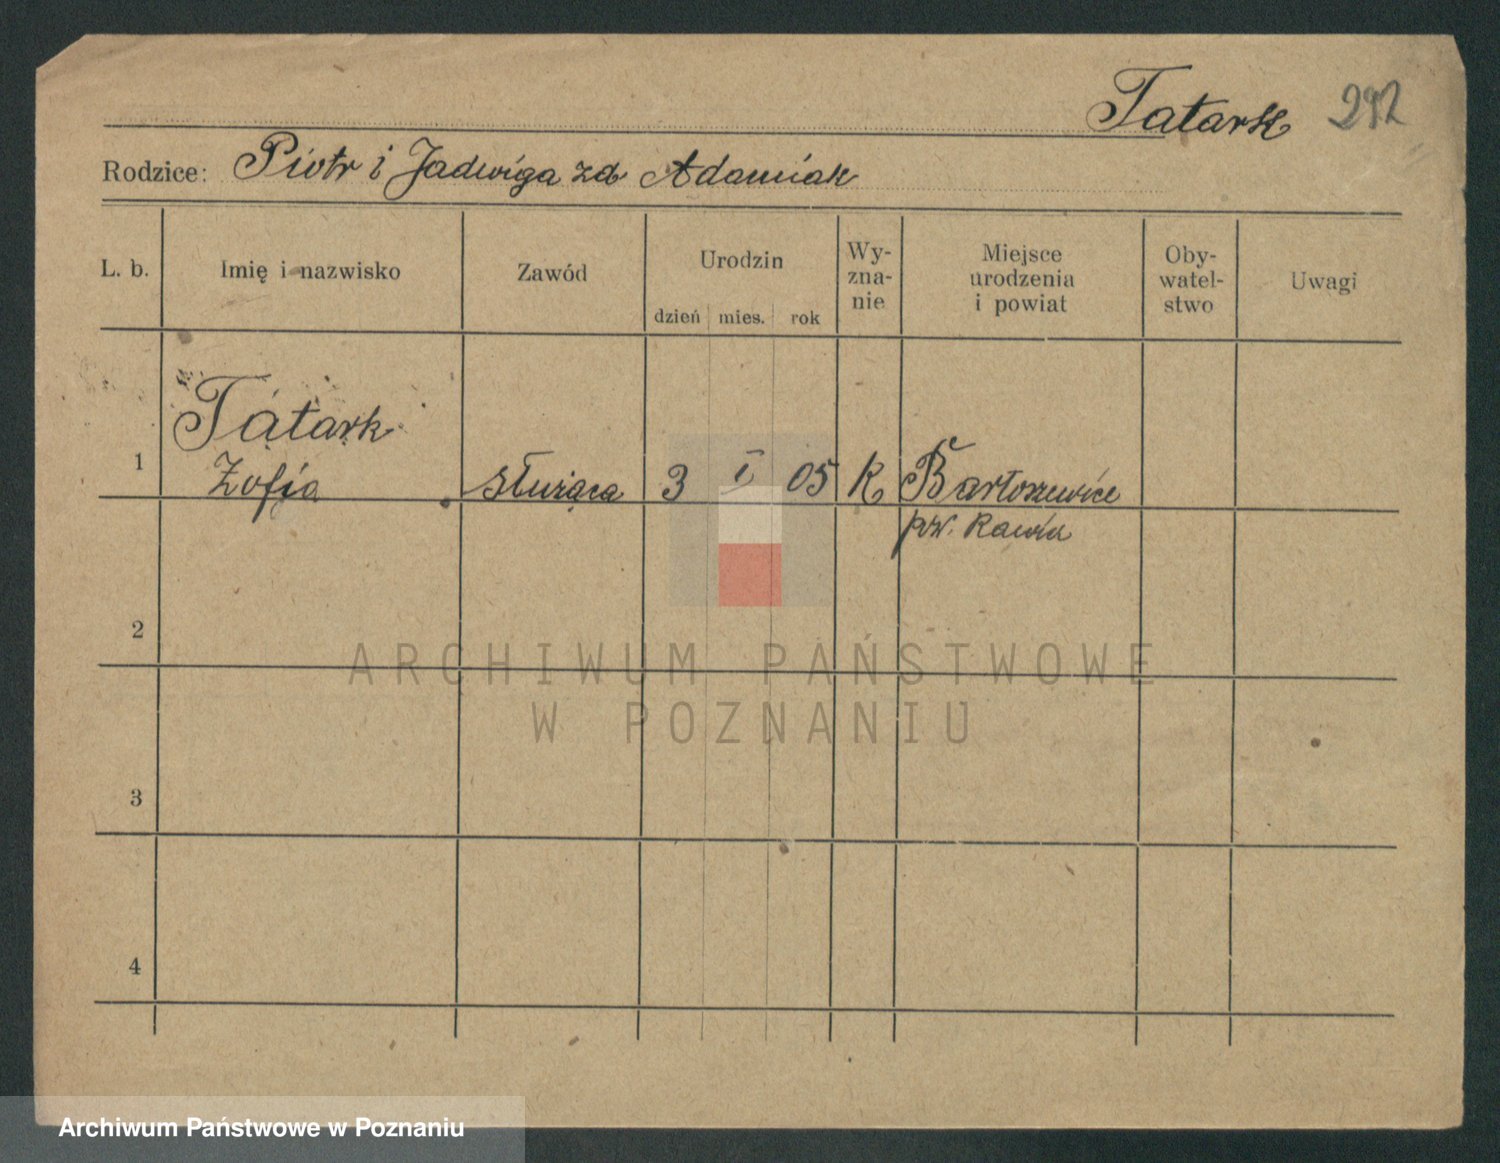 Tatark 292
Rodzice: Piotr i Jadwiga zd Adamiak
L. b.
Imię i nazwisko
Zawód
Urodzin
dzień mies. rok
Wy-
zna-
nie
Miejsce
urodzenia
i powiat
Oby-
watel-
stwo
Uwagi
Tatark
1 Zofja służąca 3 I 05 K Bartoszewice
pw. Rawa
2
3
4
ARCHIWUM PAŃSTWOWE
W POZNANIU
Archiwum Państwowe w Poznaniu